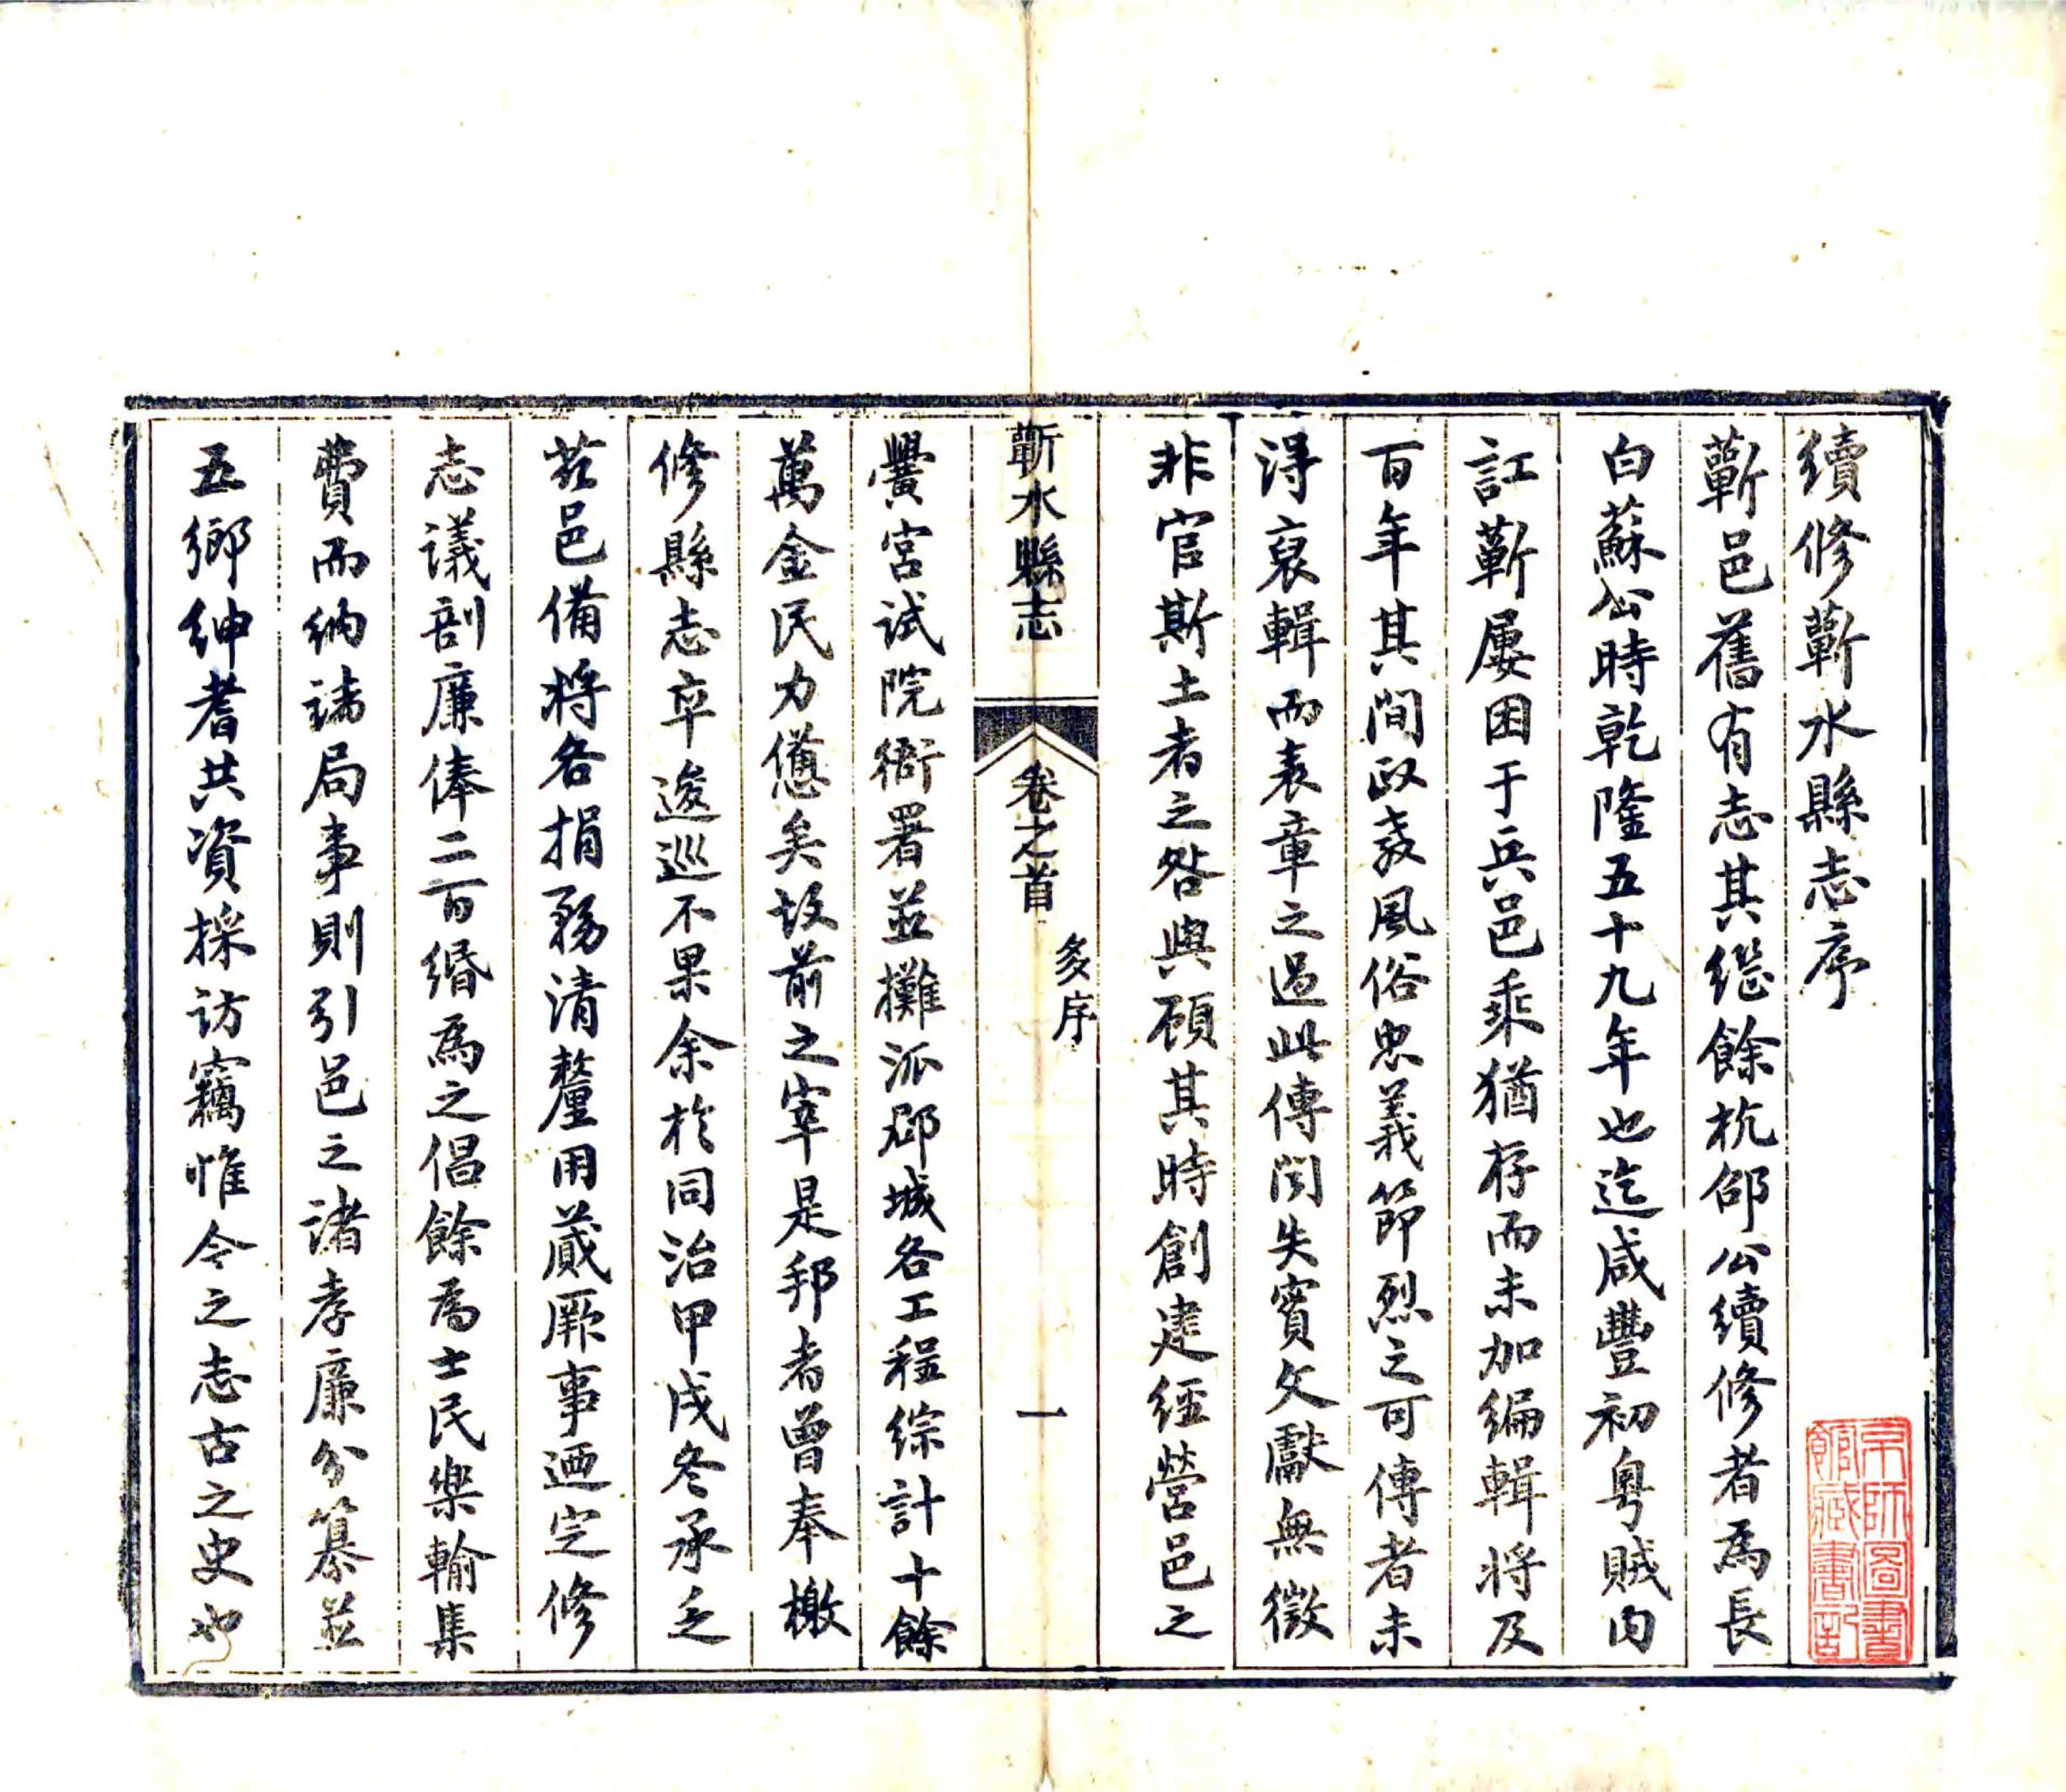 續修蘄水縣志序
蘄邑舊有志其繼餘杭邵公續修者爲長
白蘇公時乾隆五十九年也迄咸豐初粵賊內
訌蘄屢困于兵邑乘猶存而未加編輯將及
百年其間政教風俗忠義節烈之可傳者未
淂裒輯而表章之過此傳聞失實文獻無徵
非官斯土者之咎與顧其時創建經營邑之
蘄水縣志
卷之首
多序
一
黌宮試院衙署並攤派郡城各工程綜計十餘
萬金民力憊矣故前之宰是邦者曾奉檄
修縣志卒逡巡不果余於同治甲戌冬承乏
茲邑備將各捐務清釐用蕆厥事迺定修
志議剖廉俸二百緡爲之倡餘爲士民樂輸集
費而納諸局事則引邑之諸孝廉分纂並
五鄉紳耆共資採訪竊惟今之志古之史也
京師圖書
館藏書記